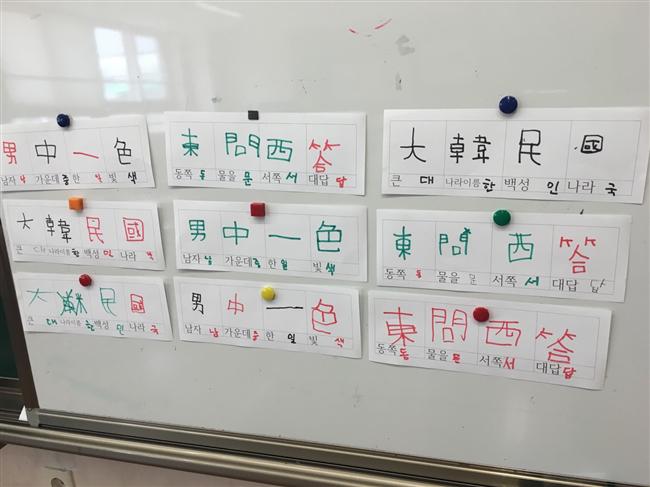 男 中 一 色
남자 남 가운데 중 한 일 빛 색
東 問 西 答
동쪽 동 물을 문 서쪽 서 대답 답
大 韓 民 國
큰 대 나라이름 한 백성 인 나라 국
大 韓 民 國
큰 나라이름 한 백성 민 나라
男 中 一 色
남자 남 가운데 중 한 일 빛 색
東 問 西 答
동쪽 동 물을 문 서쪽 서 대답 답
大 韓 民 國
큰 대 나라이름 한 백성 민 나라 국
男 中 一 色
남자 남 가운데 중 한 일 빛 색
東 問 西 答
동쪽 동 물을 문 서쪽 서 대답 답